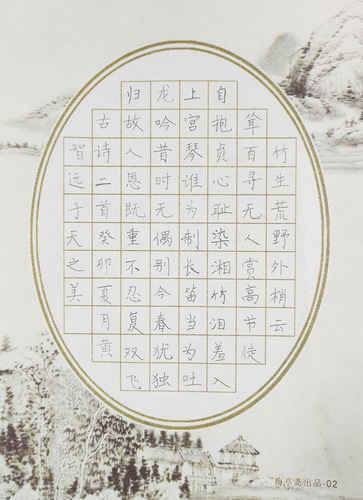 竹生荒野外梢云
耸百寻无人赏高节徒
自抱贞心耻染湘竹泪羞入
上宫琴谁为制长笛当为吐
龙吟昔时无偶别今春犹独
归故人恩既重不忍复双飞
古诗二首癸卯夏月黄
智远于天之美
梅亭斋出品-02